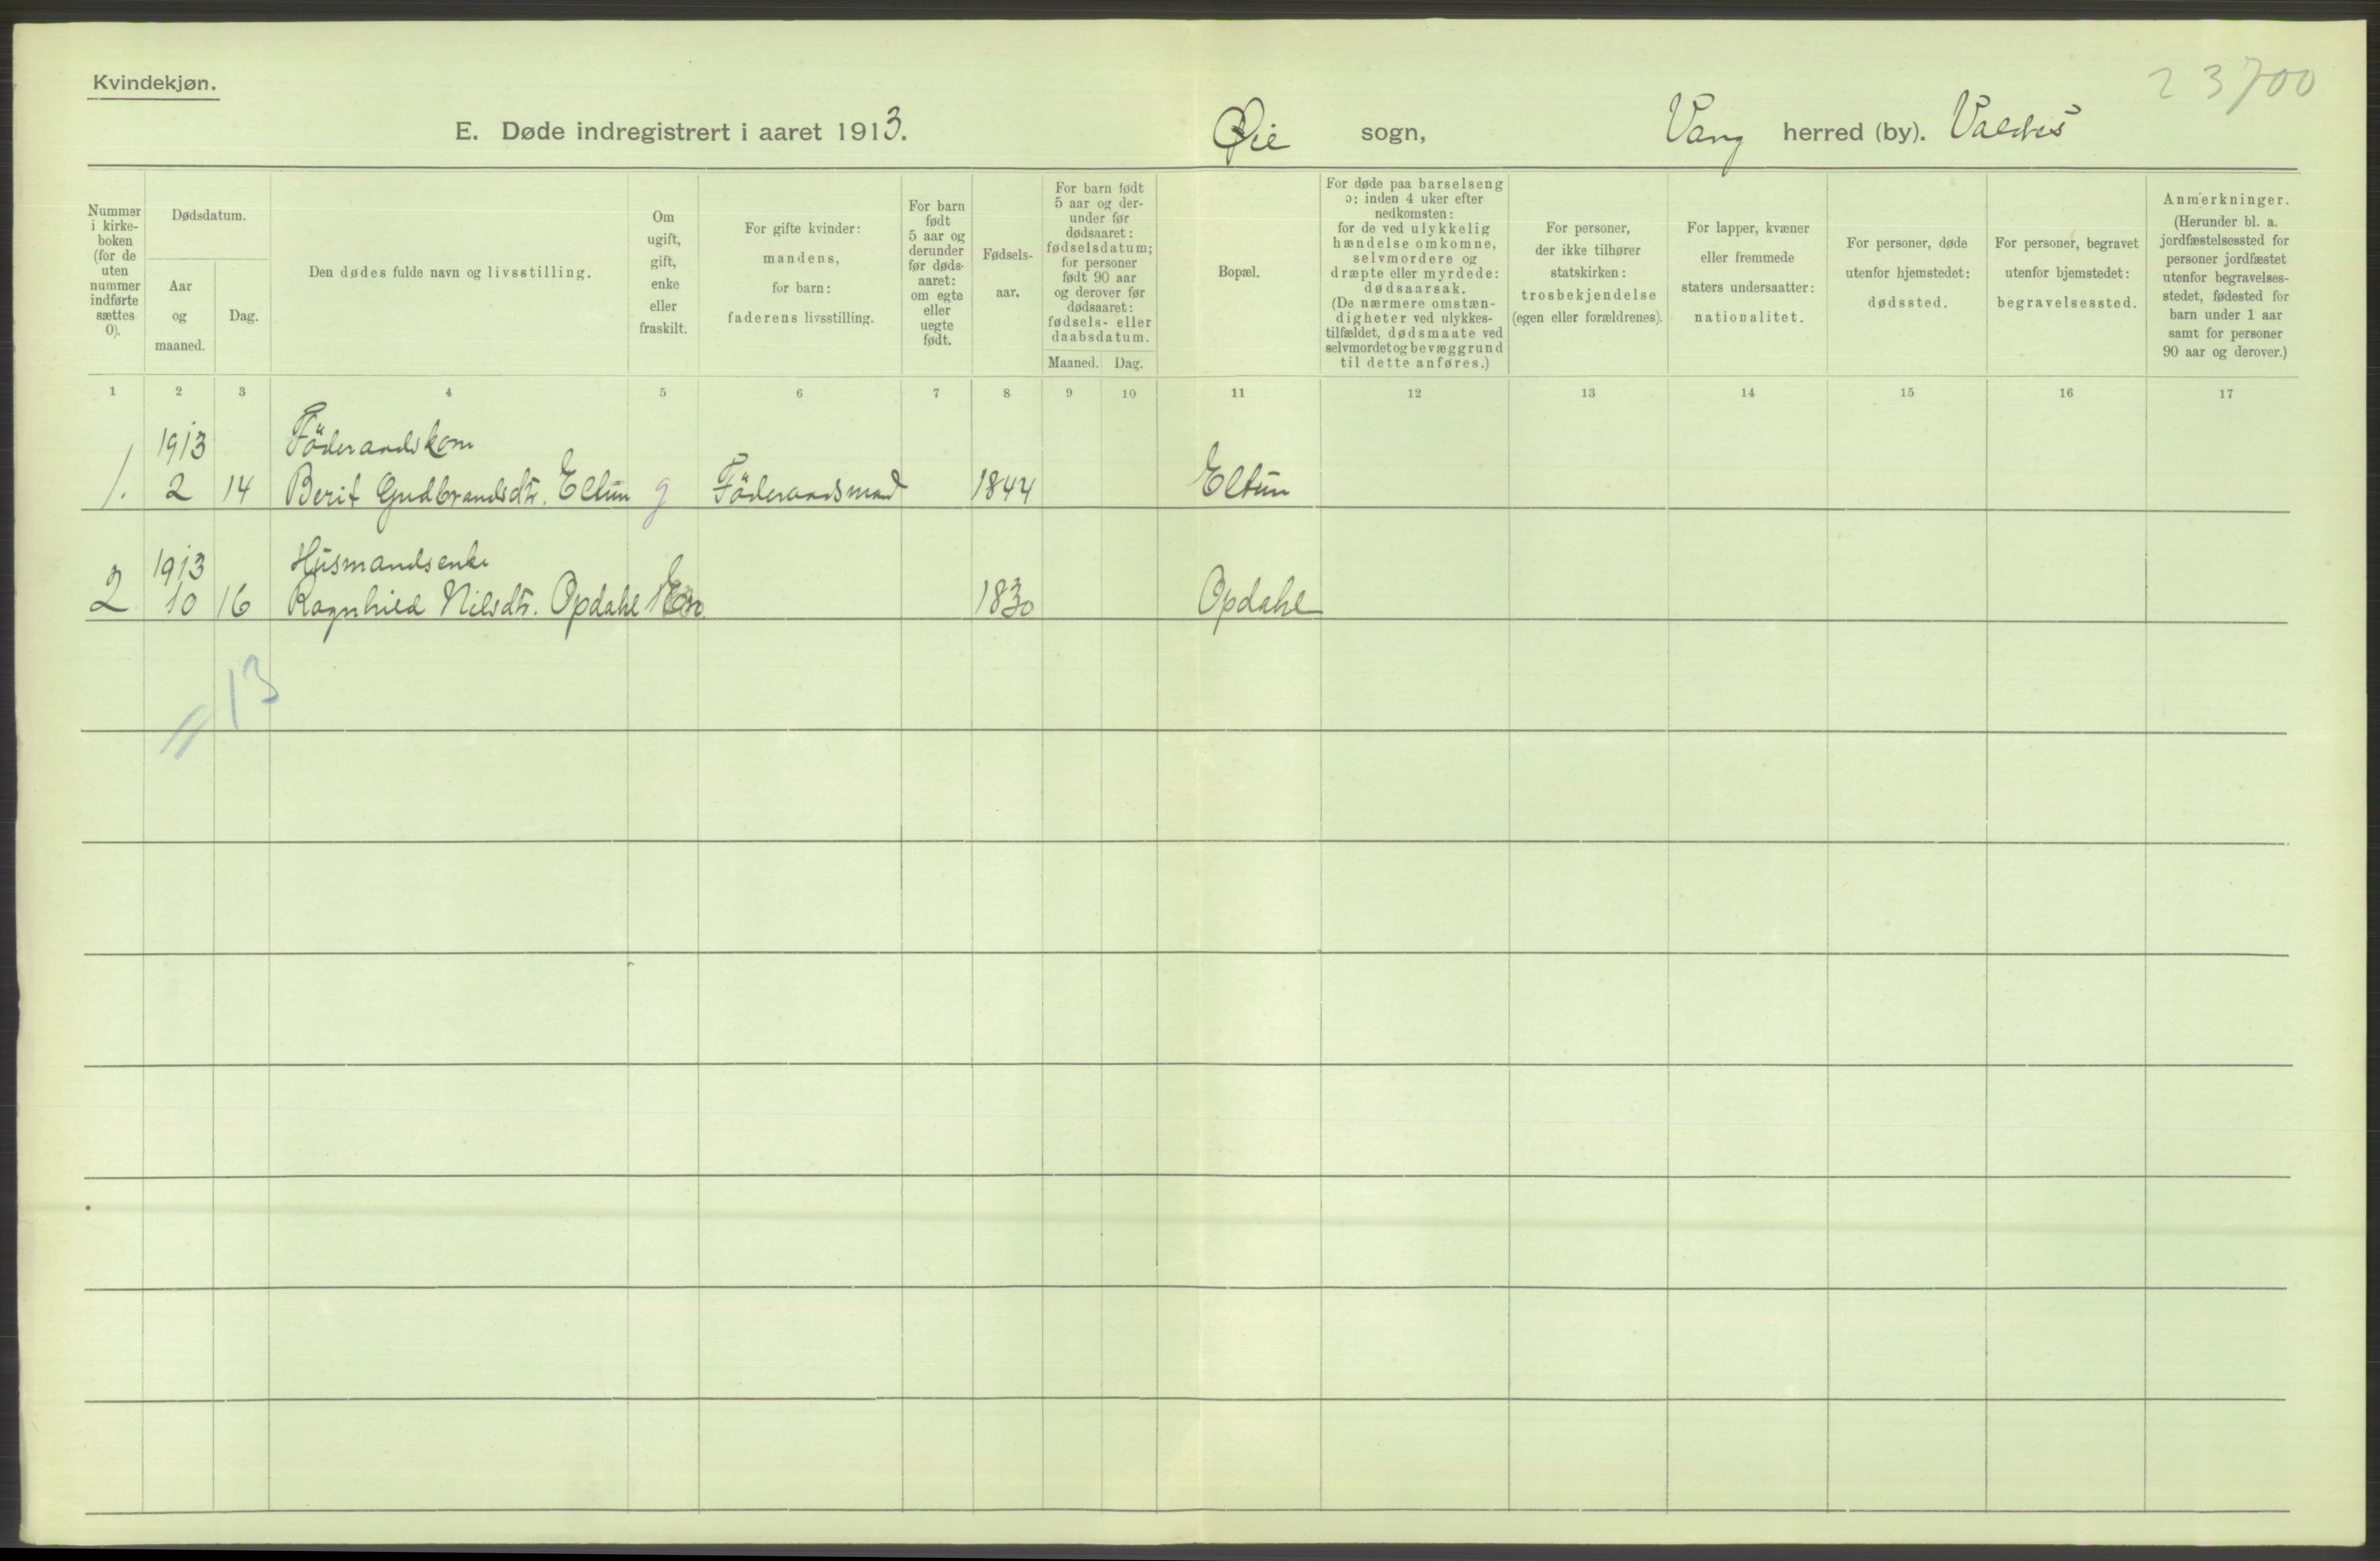 Kvindekjøn.
23700
E. Døde indregistrert i aaret 1913. Øie sogn, Vang herred (by). Valdres
Nummer i kirke-boken (for de uten nummer indførte sættes 0).
Dødsdatum.
Aar og maaned.
Dag.
Den dødes fulde navn og livsstilling.
Om ugift, gift, enke eller fraskilt.
For gifte kvinder: mandens, for barn: faderens livsstilling.
For barn født 5 aar og derunder før døds-aaret: om egte eller uegte født.
Fødsels-aar.
For barn født 5 aar og der-under før dødsaaret: fødselsdatum; for personer født 90 aar og derover før dødsaaret: fødsels- eller daabsdatum.
Maaned. Dag.
Bopæl.
For døde paa barselseng ɔ: inden 4 uker efter nedkomsten: for de ved ulykkelig hændelse omkomne, selvmordere og dræpte eller myrdede: dødsaarsak. (De nærmere omstæn-digheter ved ulykkes-tilfældet, dødsmaate ved selvmordet og bevæggrund til dette anføres.)
For personer, der ikke tilhører statskirken: trosbekjendelse (egen eller forældrenes).
For lapper, kvæner eller fremmede staters undersaatter: nationalitet.
For personer, døde utenfor hjemstedet: dødssted.
For personer, begravet utenfor hjemstedet: begravelsessted.
Anmerkninger. (Herunder bl. a. jordfæstelsessted for personer jordfæstet utenfor begravelses-stedet, fødested for barn under 1 aar samt for personer 90 aar og derover.)
1 2 3 4 5 6 7 8 9 10 11 12 13 14 15 16 17
1913 Föderaadskone
1. 2 14 Berit Gudbrandsdtr. Eltun g Föderaadsmand 1844 Eltun
1913 Husmandsenke
2 10 16 Ragnhild Nilsdtr. Opdahl 1830 Opdahl
13